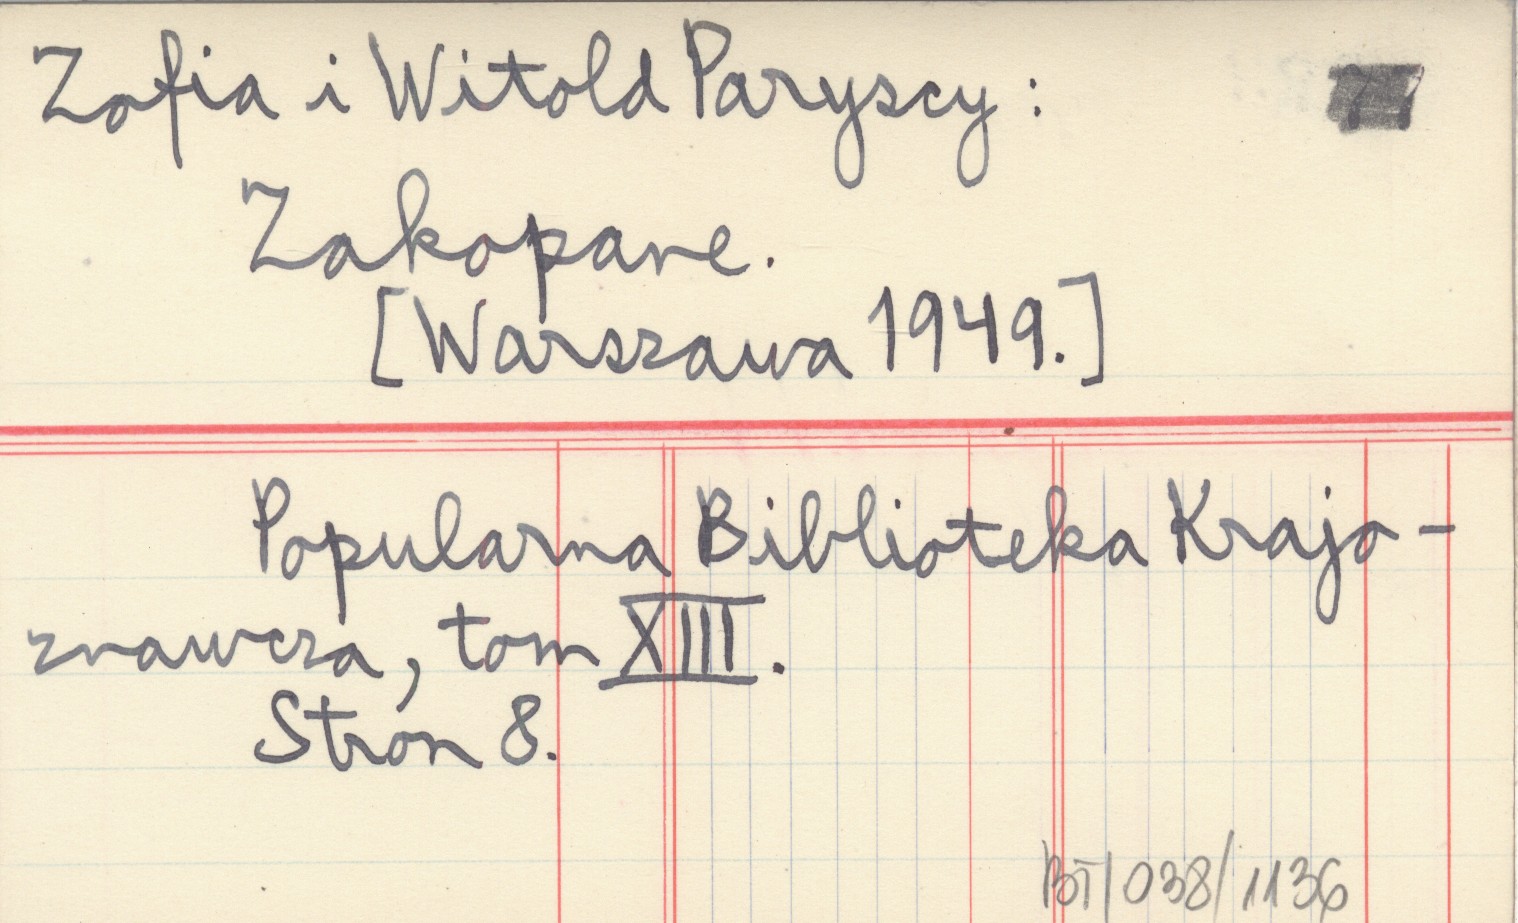 Zofia i Witold Paryscy:
Zakopane.
[Warszawa 1949.]
Popularna Biblioteka Krajo-
znawcza, tom XIII.
Stron 8.
BT/038/1136